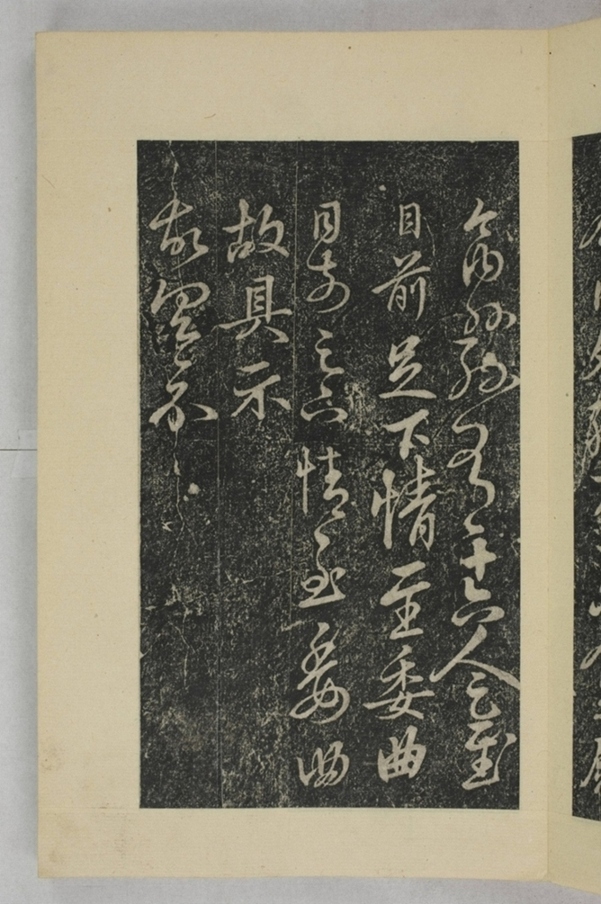 今内外孫有十六人足慰
目前足下情至委曲
目前足下情至委曲
故具示
故具示